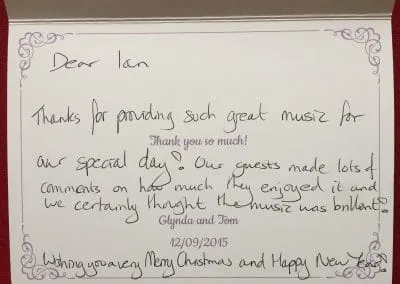 Dear Ian
Thanks for providing such great music for
Thank you so much!
our special day! Our guests made lots of
comments on how much they enjoyed it and
we certainly thought the music was brillant!
Glynda and Tom
12/09/2015
Wishing you a very Merry Christmas and Happy New Year!